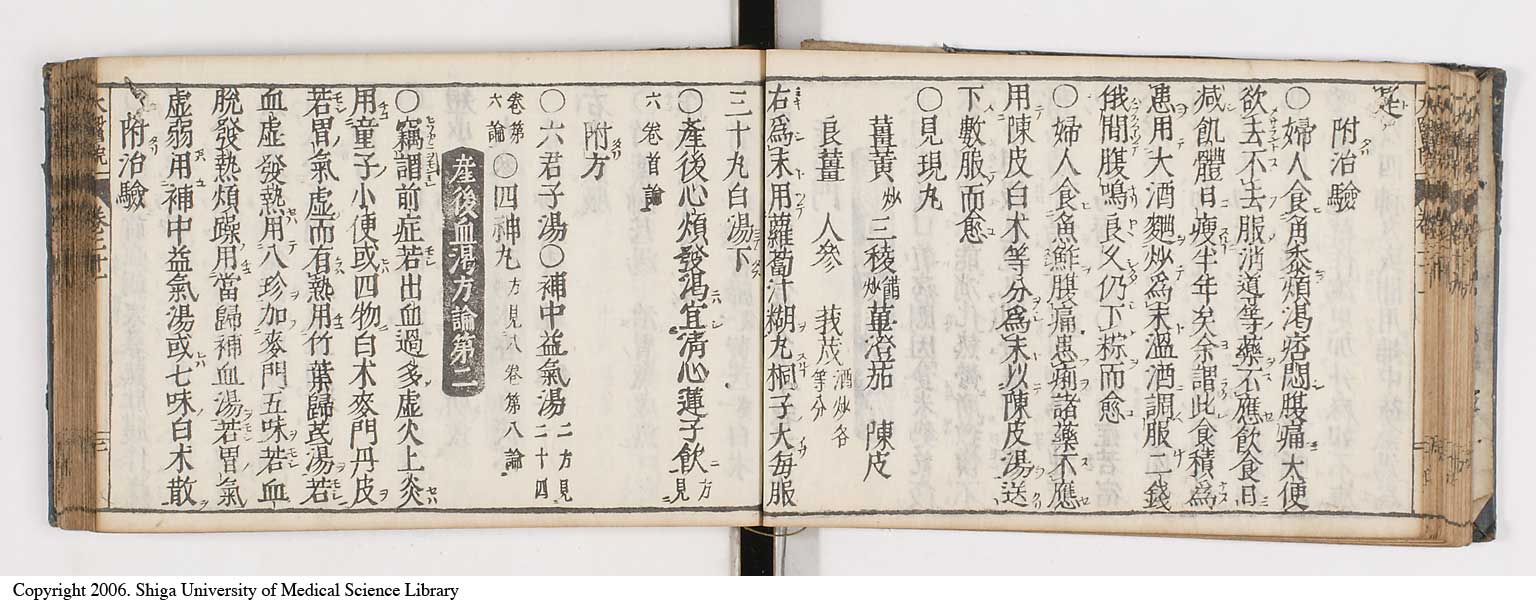 附治驗
〇婦人食角黍煩渴痞悶腹痛大便
欲去不去服消道等藥不應飲食日
減飢體日瘦半年矣余謂此食積爲
患用大酒麯炒爲末溫酒調服二錢
俄間腹鳴良久仍下粽而愈
〇婦人食魚鮓腹痛患痢諸藥不應
用陳皮白朮等分爲末以陳皮湯送
下數服而愈
〇見晛丸
薑黃炒 三稜醋炒 蓽澄茄 陳皮
良薑 人參 莪茂酒炒各等分
右爲末用蘿蔔汁糊丸桐子大每服
三十丸白湯下
〇產後心煩發渴宜淸心蓮子飲方見
六卷首論
附方
〇六君子湯〇補中益氣湯二方見二十四
卷第六論 四神丸方見八卷第八論
產後血渴方論第二
〇竊謂前症若出血過多虛火上炎
用童子小便或四物白朮麥門丹皮
若胃氣虛而有熱用竹葉歸芪湯若
血虛發熱用八珍加麥門五味若血
脫發熱煩躁用當歸補血湯若胃氣
虛弱用補中益氣湯或七味白朮散
附治驗
Copyright 2006. Shiga University of Medical Science Library